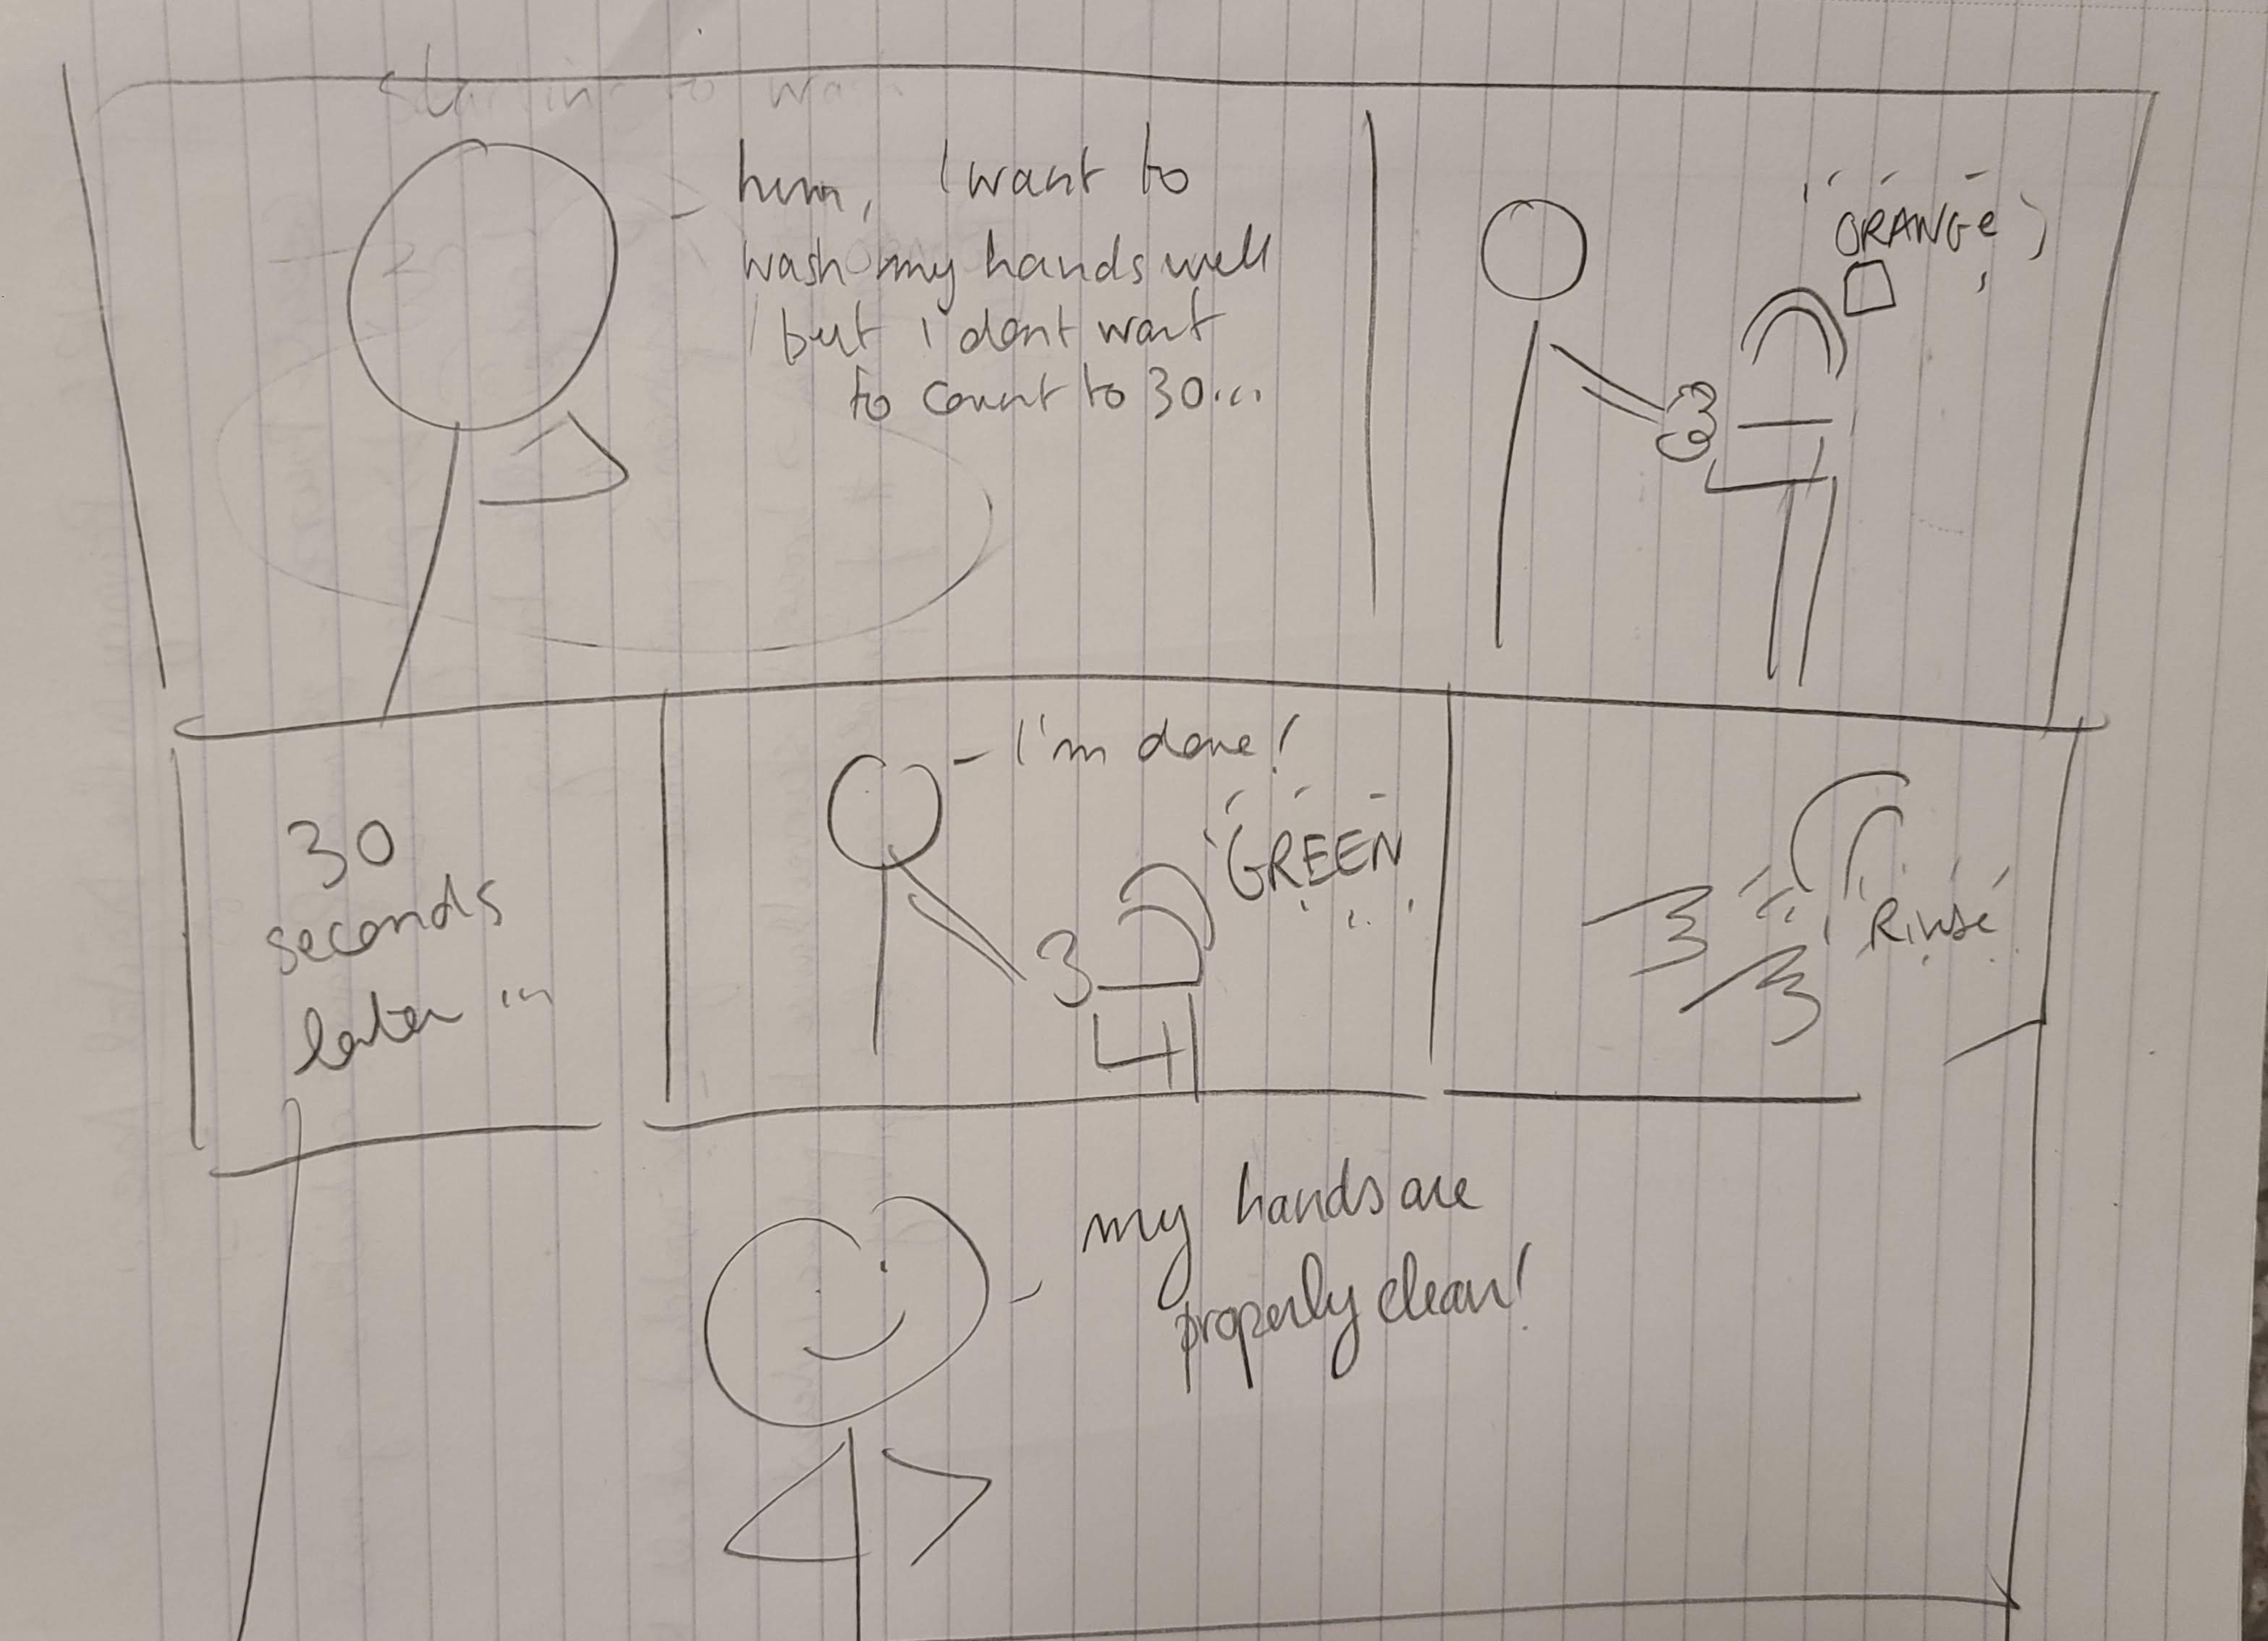 hmm, I want to
wash my hands well
but i dont want
to count to 30...
ORANGe
30
seconds
later ...
- I'm done!
GREEN
Rinse
- my hands are
properly clean!